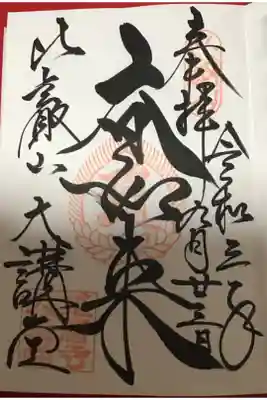 奉拝
令和三年
月廿三日
大日如来
比叡山
大講堂